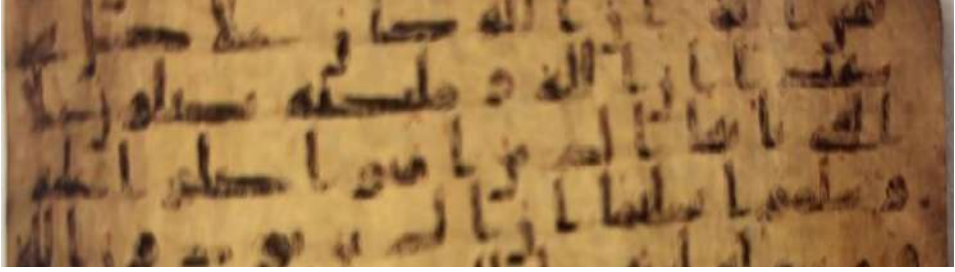 الله ان الله كان على كل شى
شهيدا ان الله و ملئكته يصلون على
النبى يايها الذين امنوا صلوا عليه
و سلموا تسليما ان الذين يوذون الله